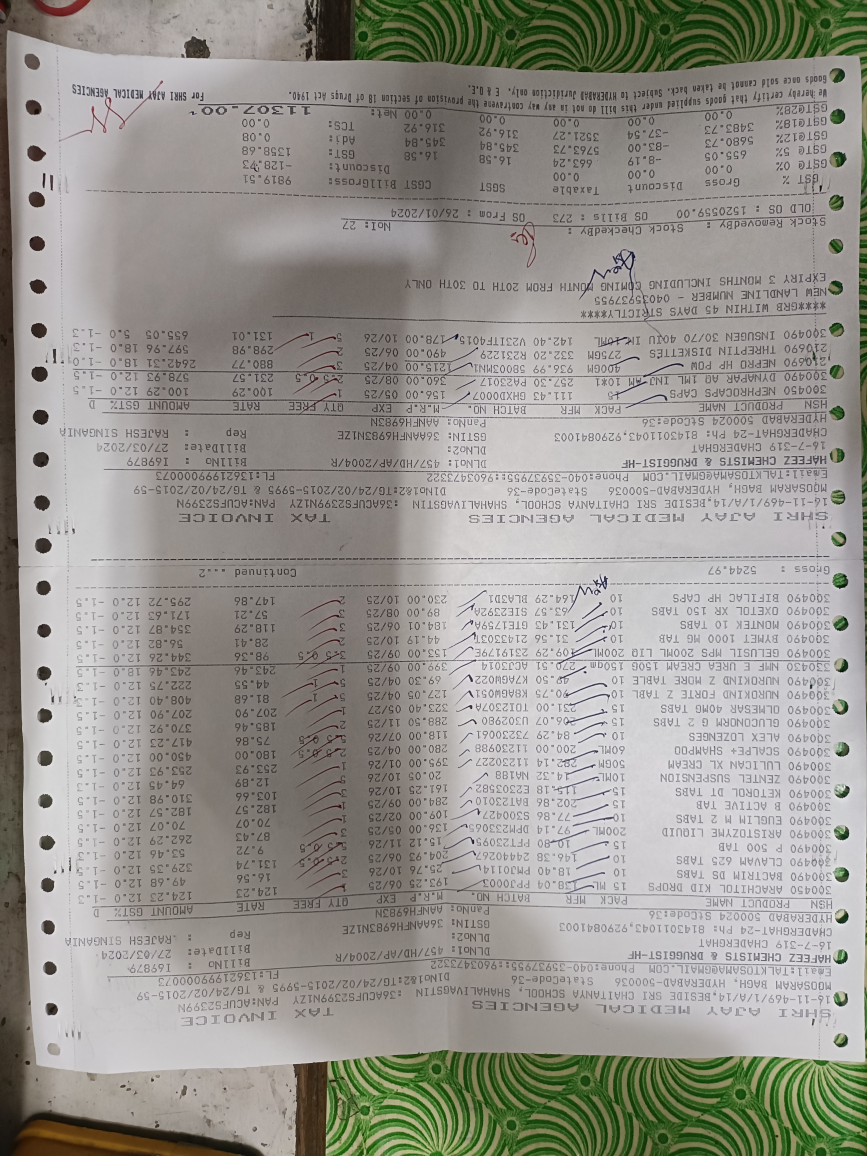 SHRI AJAY MEDICAL AGENCIES TAX INVOICE
16-11-469/1/A/14,BESIDE SRI CHAITANYA SCHOOL, SHAHALIVAGSTIN :36ACUFS2399N1ZY PAN:ACUFS2399N
MOOSARAM BAGH, HYDERABAD-500036 StateCode-36 DlNo1&2:TG/24/02/2015-5995 & TG/24/02/2015-59
Email:TALKTOSAMA@GMAIL.COM Phone:040-35937955:9603473322 FL:13621999000073
HAFEEZ CHEMISTS & DRUGGIST-HF DLNO1: 457/HD/AP/2004/R BillNo : I69879
16-7-319 CHADERGHAT DLNO2: BillDate: 27/03/2024
CHADERGHAT-24 Ph: 8143011043,9290841003 GSTIN: 36AANFH6983N1ZE Rep : RAJESH SINGANIA
HYDERABAD 500024 Stcode:36 PanNo: AANFH6983N
HSN PRODUCT NAME PACK MFR BATCH NO. M.R.P EXP QTY FREE RATE AMOUNT GST% D
300450 ARACHITOL KID DROPS 15 ML 138.04 PPJ0003 193.25 06/25 1 124.23 124.23 12.0 -1.3
300490 BACTRIM DS TABS 10 18.40 PMJ0114 25.76 10/26 3 16.56 49.68 12.0 -1.5
300490 CLAVAM 625 TABS 10 146.38 24440267 204.93 06/25 2.5 0.5 131.74 329.35 12.0 -1.5
300490 P 500 TAB 10 10.80 PFT23095 15.12 11/26 5.5 0.5 9.72 53.46 12.0 -1.5
300490 ARISTOZYME LIQUID 200ML 97.14 DPM233065 136.00 05/25 3 87.43 262.29 12.0 -1.5
300490 EUGLIM M 2 TABS 10 77.86 S300427 109.00 02/25 1 70.07 70.07 12.0 -1.5
300490 B ACTIVE TAB 15 202.86 BAT23010 284.00 09/25 1 182.57 182.57 12.0 -1.5
300490 KETOROL DT TABS 15 115.18 E2303582 161.25 10/26 3 103.66 310.98 12.0 -1.5
300490 ZENTEL SUSPENSION 10ML 14.32 NA188 20.05 10/26 5 12.89 64.45 12.0 -1.5
300490 LULICAN XL CREAM 50GM 282.14 11230227 395.00 01/26 1 253.93 253.93 12.0 -1.5
300490 SCALPE+ SHAMPOO 60ML 200.00 11230988 280.00 04/25 2.5 0.5 180.00 450.00 12.0 -1.5
300490 ALEX LOZENGES 10 84.29 73230061 118.00 07/26 5.5 0.5 75.86 417.23 12.0 -1.5
300490 GLUCONORM G 2 TABS 15 206.07 U302980 288.50 11/25 2 185.46 370.92 12.0 -1.5
300490 OLMESAR 40MG TABS 15 231.00 TOI2307A 323.40 05/27 1 207.90 207.90 12.0 -1.5
300490 NUROKIND FORTE Z TABL 10 90.75 KBAGW051 127.05 04/25 5 1 81.68 408.40 12.0 -1.5
300490 NUROKIND Z MORE TABLE 10 49.50 KTAGW022 69.30 04/25 5 1 44.55 222.75 12.0 -1.3
330430 NMF E UREA CREAM 150G 150gm 270.51 ACJ3014 399.00 09/25 1 243.46 243.46 18.0 -1.5
300490 GELUSIL MPS 200ML LIQ 200ML 109.29 2319179E 153.00 09/25 3.5 0.5 98.36 344.26 12.0 -1.5
300490 BYMET 1000 MG TAB 10 31.56 21423003 44.19 10/25 2 28.41 56.82 12.0 -1.5
300490 MONTEK 10 TABS 10 131.43 GTE1759A 184.01 06/26 3 118.29 354.87 12.0 -1.5
300490 OXETOL XR 150 TABS 10 63.57 SIE2392A 89.00 08/25 3 57.21 171.63 12.0 -1.5
300490 BIFILAC HP CAPS 10 164.29 BLA3D1 230.00 10/25 2 147.86 295.72 12.0 -1.5
Gross : 5244.97 Continued ...2
SHRI AJAY MEDICAL AGENCIES TAX INVOICE
16-11-469/1/A/14,BESIDE SRI CHAITANYA SCHOOL, SHAHALIVAGSTIN :36ACUFS2399N1ZY PAN:ACUFS2399N
MOOSARAM BAGH, HYDERABAD-500036 StateCode-36 DlNo1&2:TG/24/02/2015-5995 & TG/24/02/2015-59
Email:TALKTOSAMA@GMAIL.COM Phone:040-35937955:9603473322 FL:13621999000073
HAFEEZ CHEMISTS & DRUGGIST-HF DLNO1: 457/HD/AP/2004/R BillNo : I69879
16-7-319 CHADERGHAT DLNO2: BillDate: 27/03/2024
CHADERGHAT-24 Ph: 8143011043,9290841003 GSTIN: 36AANFH6983N1ZE Rep : RAJESH SINGANIA
HYDERABAD 500024 Stcode:36 PanNo: AANFH6983N
HSN PRODUCT NAME PACK MFR BATCH NO. M.R.P EXP QTY FREE RATE AMOUNT GST% D
300450 NEPHROCAPS CAPS 15 111.43 GHXD0007 156.00 05/25 1 100.29 100.29 12.0 -1.5
300490 DYNAPAR AQ 1ML INJ AM 10X1 257.30 PA23017 360.00 08/25 2.5 0.5 231.57 578.93 12.0 -1.5
210690 NEPRO HP POW 400GM 936.99 58003NN 1215.00 04/25 3 880.77 2642.31 18.0 -1.0
210690 THREPTIN DISKETTES 275GM 332.20 R231229 490.00 06/25 2 298.98 597.96 18.0 -1.5
300490 INSUGEN 30/70 40IU IN 10ML 142.40 V231FTF4015 178.00 10/26 5 1 131.01 655.05 5.0 -1.3
****GRB WITHIN 45 DAYS STRICTLY****
NEW LANDLINE NUMBER - 04035937955
EXPIRY 3 MONTHS INCLUDING COMING MONTH FROM 20TH TO 30TH ONLY
Stock RemovedBy : Stock CheckedBy : NoI: 27
OLD OS : 1520559.00 OS Bills : 273 OS From : 26/01/2024
GST % Gross Discount Taxable SGST CGST BillGross: 9819.51
GSTG 0% 0.00 0.00 0.00 Discount : -128.73
GSTG 5% 655.05 -8.19 663.24 16.58 16.58 GST: 1358.68
GSTG12% 5680.73 -83.00 5763.73 345.84 345.84 Adj: 0.08
GSTG18% 3483.73 -37.54 3521.27 316.92 316.92 TCS: 0.00
GSTG28% 0.00 0.00 0.00 0.00 0.00 Net: 11307.00
We hereby certify that goods supplied under this bill do not in any way contravene the provision of section 18 of Drugs Act 1940. For SHRI AJAY MEDICAL AGENCIES
Goods once sold cannot be taken back. Subject to HYDERABAD Jurisdiction only. E & O.E.